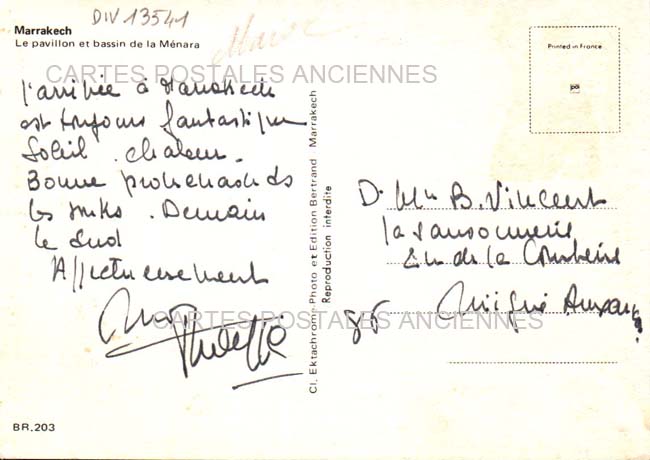 DIV 13541
Marrakech
Le pavillon et bassin de la Ménara
Maroc
CARTES POSTALES ANCIENNES
l'arrivée à Marrakech
est toujours fantastique
Soleil. chaleur.
Bonne promenade ds
les souks. Demain
le Sud
Affectueusement
CARTES POSTALES ANCIENNES
BR.203
Cl. Ektachrome-Photo et Edition Bertrand Marrakech
Reproduction interdite
Printed in France
B. Vincent
la
de la
86